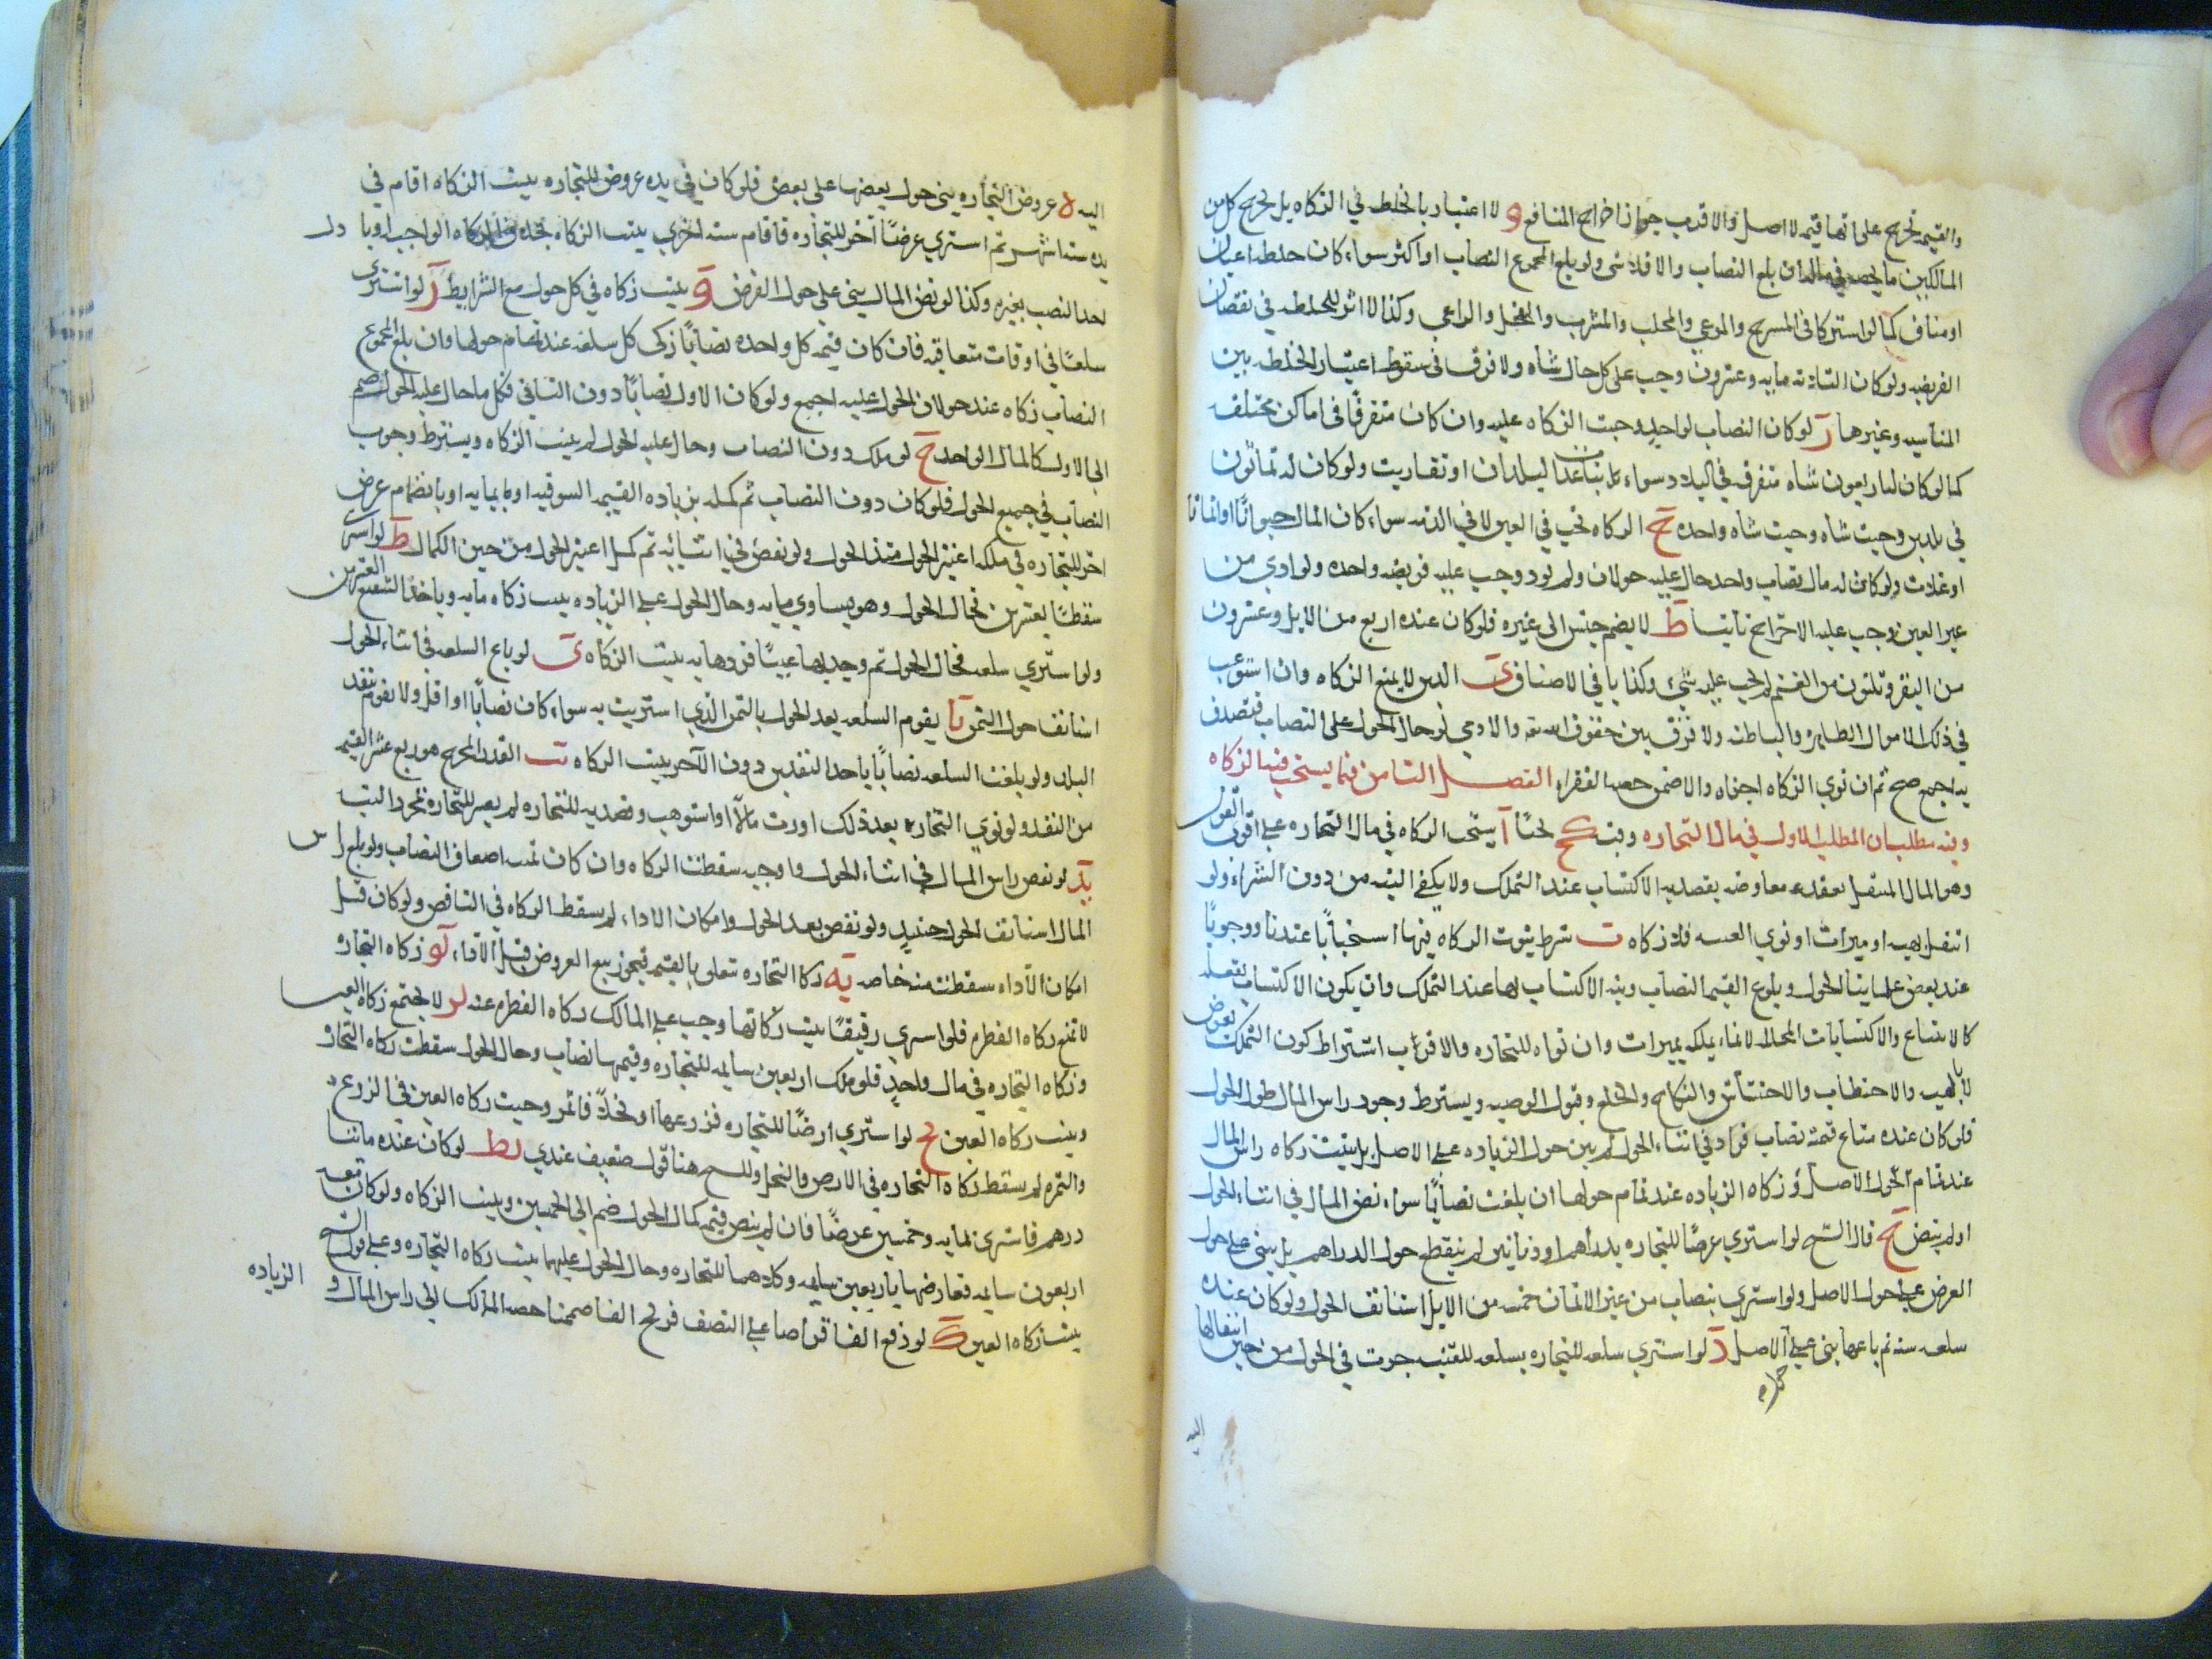 والقيمه تخرج على انها قيمه لا اصل والاقرب جواز اخراج المنافع و لا اعتبار بالخلطه في الزكاه بل يخرج كل من
المالكين ما يخصه في ماله ان بلغ النصاب والا فلا شي ولو بلغ المجموع النصاب او اكثر سواء كان خلطه اعيان
او منافع كما لو اشتركا في المسرح والمرعي والمحلب والمشرب والفحل والراعي وكذا لا اثر للخلطه في نقصان
الفريضه ولو كان الثلاثه مايه وعشرون وجب على كل حال شاه ولا فرق في سقوط اعتبار الخلطه بين
الماشيه وغيرها ز لو كان النصاب لواحد وجبت الزكاه عليه وان كان متفرقا في اماكن مختلفه
كما لو كان له اربعون شاه متفرقه في البلاد سواء تباعدت البلدان او تقاربت ولو كان له ثمانون
في بلدين وجبت شاه وجبت شاه واحده ح الزكاه تجب في العين لا في الذمه سواء كان المال حيوانا او اثمانا
او غلات ولو كان له مال نصاب واحد حال عليه حولان ولم يود وجب عليه فريضه واحده ولو ادي من
غير العين وجب عليه الاخراج ثانيا ط لا يضم جنس الى غيره فلو كان عنده اربع من الابل وعشرون
من البقر وثلثون من الغنم لم يجب عليه شيء وكذا باقي الاصناف ي الدين لا يمنع الزكاه وان استوعب
في ذلك الاموال الظاهره والباطنه ولا فرق بين حقوق الله تعه والادمي لو حال الحول على النصاب فتصدق
به اجمع صح ثم ان نوي الزكاه اجزاه والا ضمن حصه الفقراء الفصل الثامن فيما يستحب فيه الزكاه
وفيه مطلبان المطلب الاول في مال التجاره وفيه كح بحثا ا يستحب الزكاه في مال التجاره على اقوى القول
وهو المال المنتقل بعقد معاوضه يقصد به الاكتساب عند التملك ولا يكفي النيه من دون الشراء ولو
انتقل بهبه او ميراث او نوي القنيه فلا زكاه ب شرط ثبوت الزكاه فيها استحبابا عندنا ووجوبا
عند بعض علماينا الحول وبلوغ القيمه النصاب ونيه الاكتساب بها عند التملك وان يكون الاكتساب بفعله
كالابتياع والاكتسابات المحلله لا بما يملكه بميراث وان نواه للتجاره والاقرب اشتراط كون التملك بعوض
لا بالهبه والاحتطاب والاحتشاش والنكاح والخلع وقبول الوصيه ويشترط وجود راس المال طول الحول
فلو كان عنده متاع قيمته نصاب فزاد في اثناء الحول لم يبن حول الزياده على الاصل بل يثبت زكاه راس المال
عند تمام الحول الاصل وزكاه الزياده عند تمام حولها ان بلغت نصابا سواء نض المال في اثناء الحول
او لم ينض ج قال الشيخ لو اشتري عرضا للتجاره بدراهم او دنانير لم ينقطع حول الدراهم بل يبني على حول
العرض على حول الاصل ولو اشتري بنصاب من غير الاثمان خمسه من الابل استانف الحول ولو كان عنده
سلعه سته ثم باعها بني على الاصل د لو اشتري سلعه للتجاره بسلعه للقنيه جرت في الحول من حين انتقالها
اليه
اليه ه عروض التجاره يبني حول بعضها على بعض فلو كان في يده عروض للتجاره يثبت الزكاه اقام في
يده سته اشهر ثم اشتري عرضا آخر للتجاره فاقام سته اخري يثبت الزكاه
احد النصب بغيره وكذا لو نض المال يبني على حول العرض و يثبت زكاه في كل حول مع الشرايط ز لو اشتري
سلعا في اوقات متعاقبه فان كان قيمه كل واحده نصابا زكى كل سلعه عند تمام حولها وان بلغ المجموع
النصاب زكاه عند حولان الحول عليه اجمع ولو كان الاول نصابا دون الثاني فكل ما حال عليه الحول ضم
الى الاول كالمال الواحد ح لو ملك دون النصاب وحال عليه الحول لم يثبت الزكاه ويشترط وجوب
النصاب في جميع الحول فلو كان دون النصاب ثم كمله بزياده القيمه السوقيه او بانمايه او بانضمام عرض
اخر للتجاره في ملكه اعتبر الحول منذ الحول ولو نقص في اثنايه ثم كمل اعتبر الحول من حين الكمال ط لو اشتري
سقطا بعشرين فحال الحول وهو يساوي مايه وحال الحول على الزياده يثبت زكاه مايه وياخذ الشفيع بالعشرين
ولو اشتري سلعه فحال الحول ثم وجد بها عيبا فردها به يثبت الزكاه ي لو باع السلعه في اثناء الحول
استانف حول الثمن يا يقوم السلعه بعد الحول بالثمن الذي اشتريت به سواء كان نصابا او اقل ولا يقوم بنقد
البلد ولو بلغت السلعه نصابا باحد النقدين دون الآخر يثبت الزكاه يب القدر المخرج هو ربع عشر القيمه
من النقد ولو نوي التجاره بعد ذلك او ورث مالا او استوهب وقصد به للتجاره لم يصر للتجاره بمجرد النيه
يد لو نقص راس المال في اثناء الحول وا وجبه سقطت الزكاه وان كان ثمنه اضعاف النصاب ولو بلغ راس
المال استانف الحول حينيذ ولو نقص بعد الحول وامكان الاداء لم يسقط الزكاه في الناقص ولو كان قبل
امكان الاداء سقطت منه خاصه يه زكاه التجاره تتعلق بالقيمه فيجوز بيع العروض قبل الاداء يو زكاه التجاره
لا تمنع زكاه الفطره فلو اشتري رقيقا يثبت زكاتها وجب على المالك زكاه الفطره عنه يز لا يجتمع زكاه العين
وزكاه التجاره في مال واحد فلو ملك اربعين سايمه للتجاره وقيمتها نصاب وحال الحول سقطت زكاه التجاره
ويثبت زكاه العين يح لو اشتري ارضا للتجاره فزرعها او نخلا فاثمر وجبت زكاه العين في الزرع
والثمره لم يسقط زكاه التجاره في الارض والنخل وللشيخ هنا قول ضعيف عندي يط لو كان عنده ماتا
درهم فاشتري بمايه وخمسين عرضا فان لم ينقص قيمه كمال الحول ضم الى الخمسين ويثبت الزكاه ولو كان معه
اربعون سايمه فعارضها باربعين سايمه وكلاهما للتجاره وحال الحول عليهما يثبت زكاه التجاره وعلى قول الشيخ
يثبت زكاه العين ك لو دفع الفا قراضا على النصف فربح الفا ضممنا حصه المالك الى راس المال و
الزياده